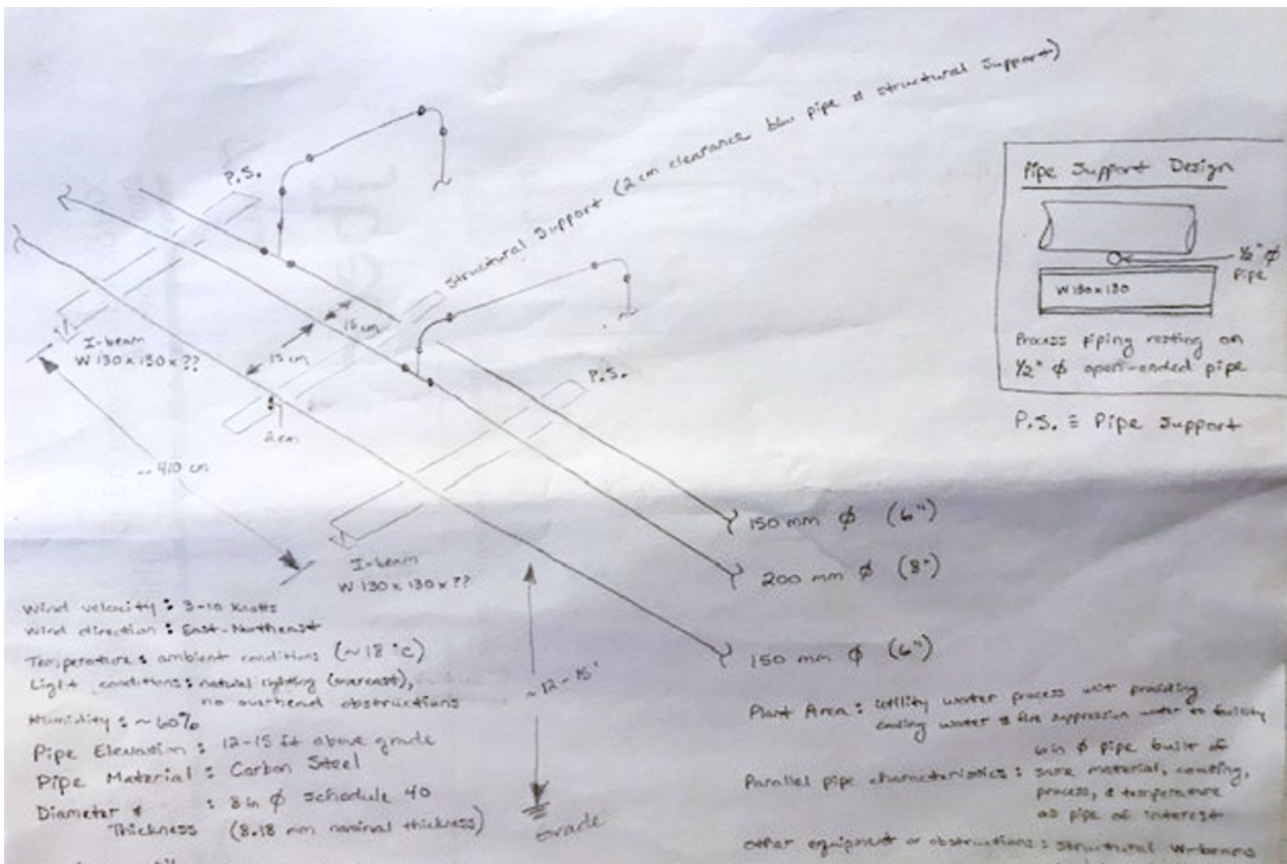 P.S.
Structural Support (2 cm clearance b/w pipe & structural support)
15 cm
15 cm
I-beam
W 130 x 130 x ??
2 cm
P.S.
~ 410 cm
I-beam
W 130 x 130 x ??
Pipe Support Design
1/2" ϕ
Pipe
W 130 x 130
Process piping resting on
1/2" ϕ open-ended pipe
P.S. ≡ Pipe Support
150 mm ϕ (6")
200 mm ϕ (8")
150 mm ϕ (6")
~ 12 - 15'
Grade
Wind velocity : 3-10 Knots
Wind direction : East-Northeast
Temperature : ambient conditions (~18 °C)
Light conditions : natural lighting (overcast),
no overhead obstructions
Humidity : ~ 60%
Pipe Elevation : 12-15 ft above grade
Pipe Material : Carbon Steel
Diameter &
Thickness : 8 in ϕ Schedule 40
(8.18 mm nominal thickness)
Plant Area : Utility water process unit providing
cooling water & fire suppression water to facility
Parallel pipe characteristics : 6 in ϕ pipe built of
same material, coating,
process, & temperature
as pipe of interest
Other equipment or obstructions : Structural W-beams